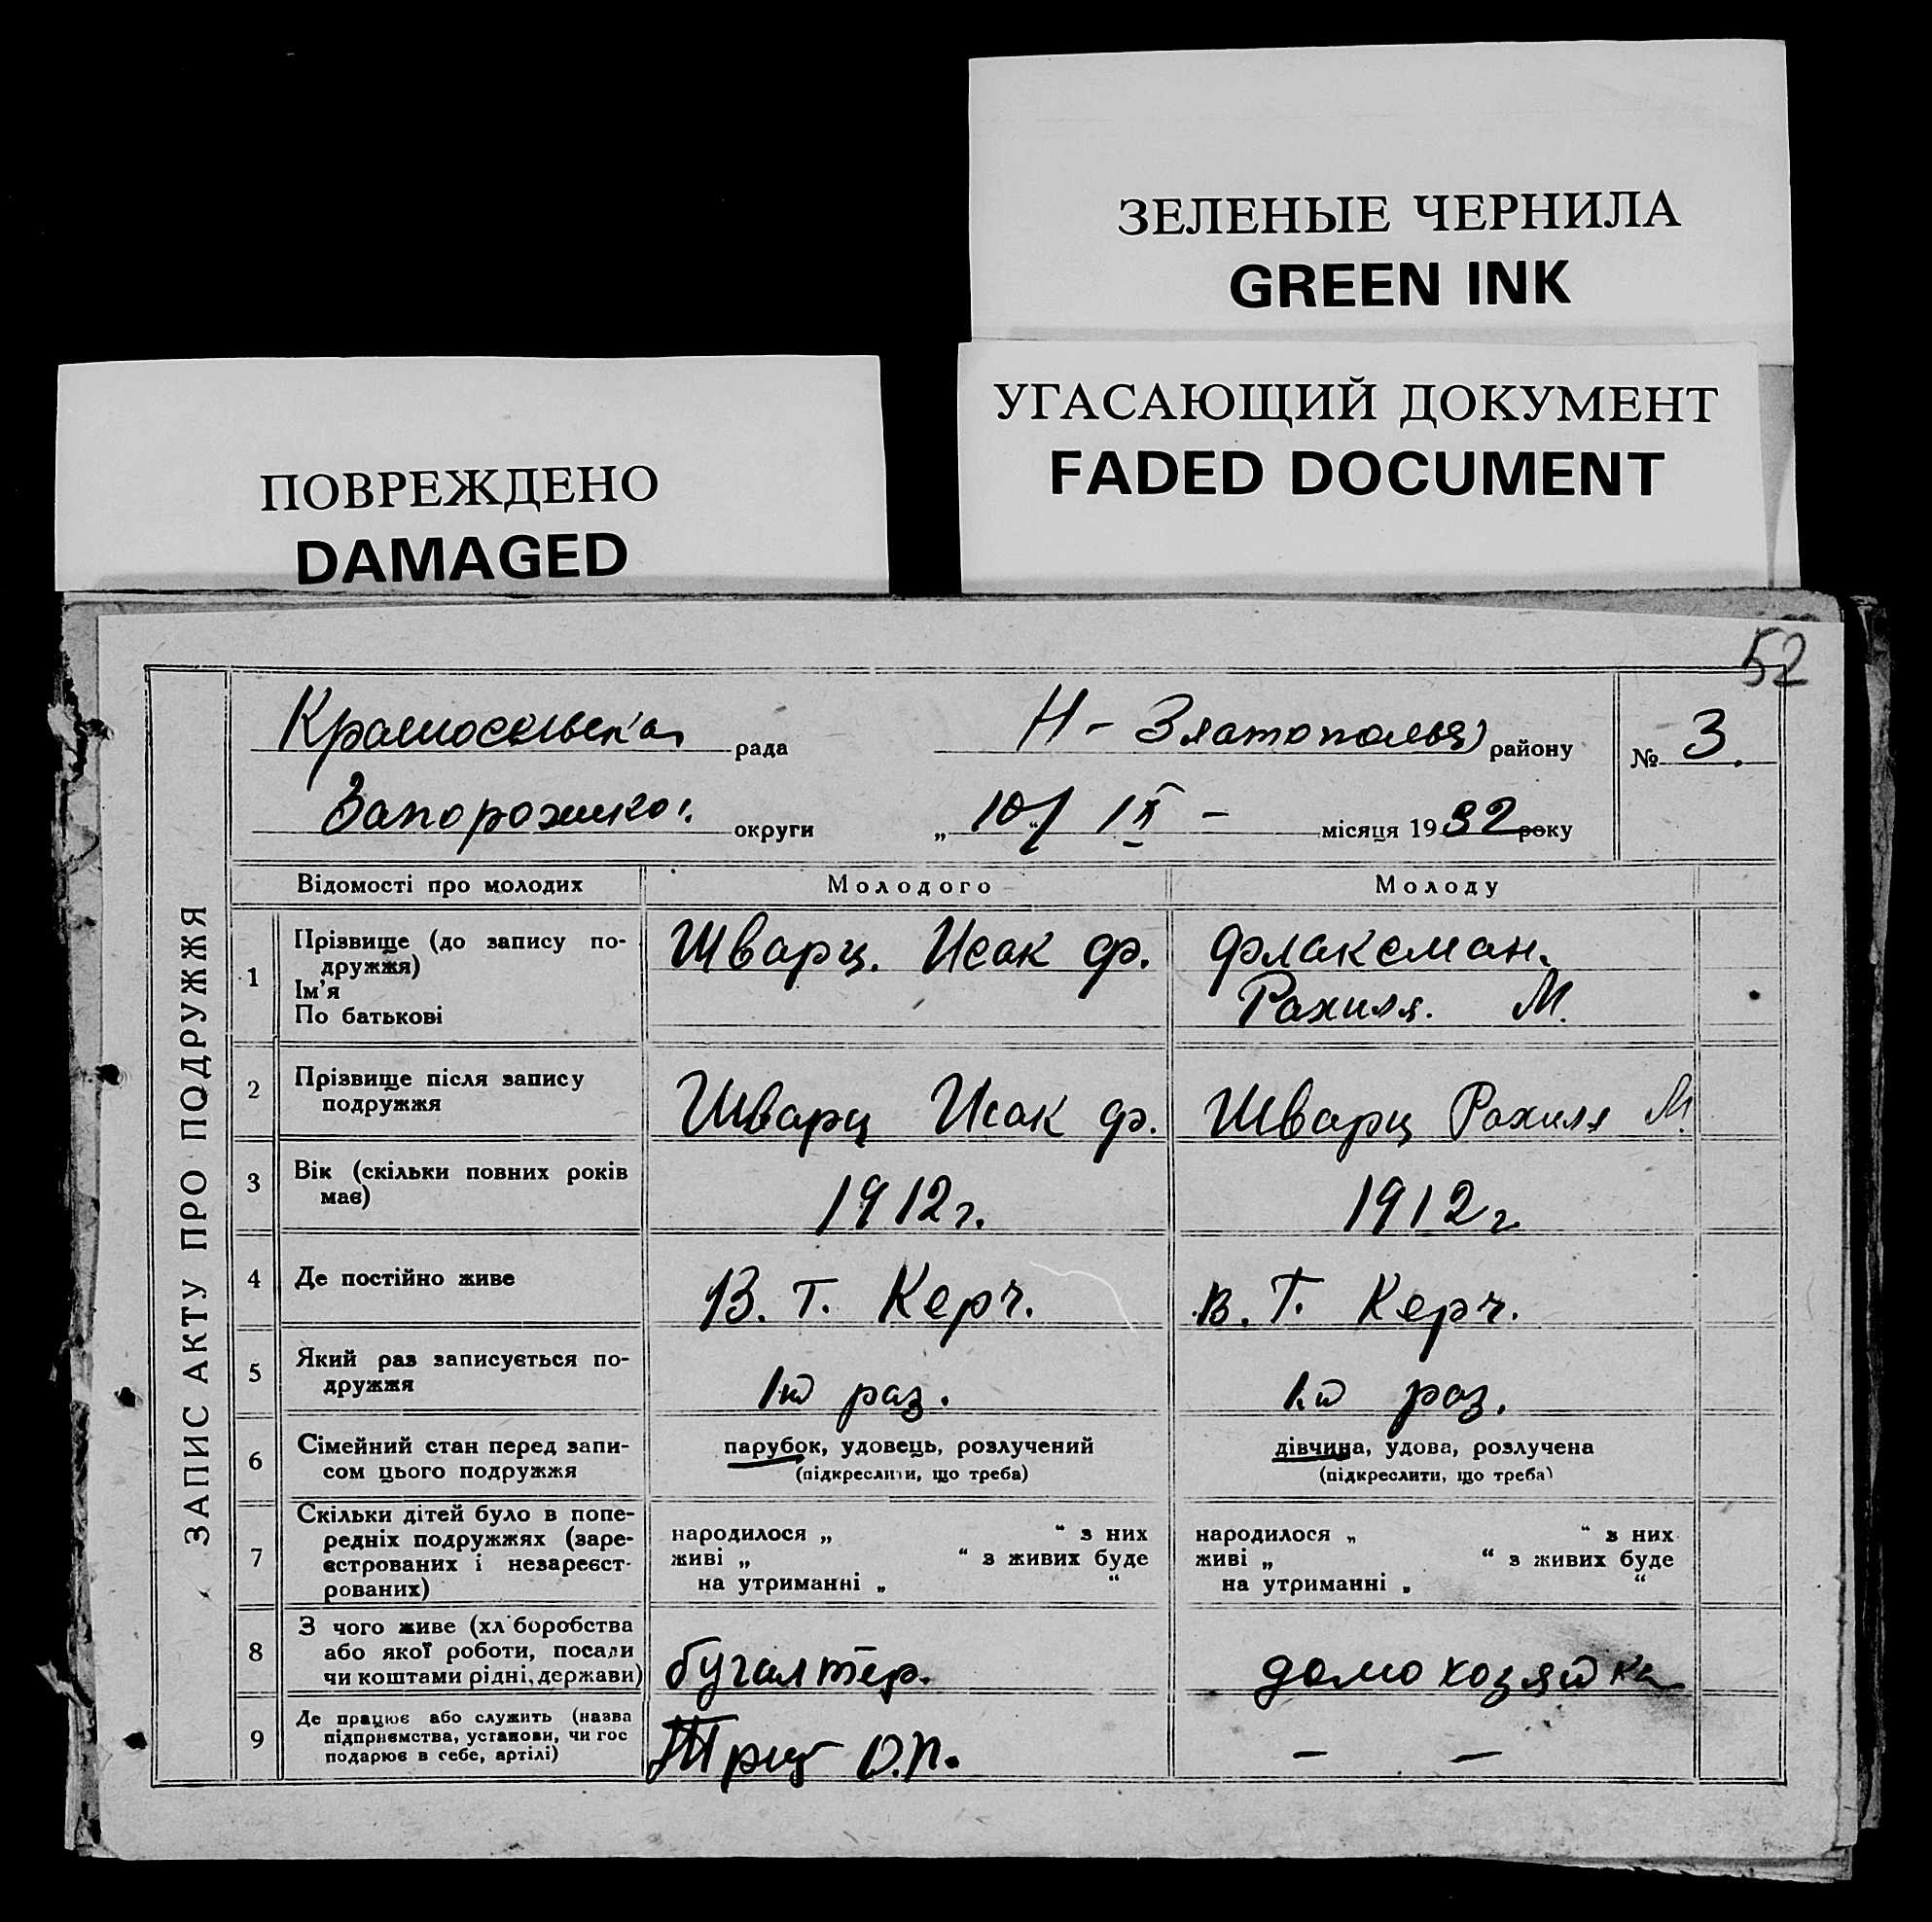 ЗЕЛЕНЫЕ ЧЕРНИЛА
GREEN INK
УГАСАЮЩИЙ ДОКУМЕНТ
FADED DOCUMENT
ПОВРЕЖДЕНО
DAMAGED
52
ЗАПИС АКТУ ПРО ПОДРУЖЖЯ
рада Н - Златополья району № 3.
округи „ 10 “ IX - місяця 1932 року
Відомості про молодих Молодого Молоду
1 Прізвище (до запису по-
дружжя)
Ім'я
По батькові
Шварц. Исак Ф.
Флаксман.
Рахиля. М.
2 Прізвище після запису
подружжя
Шварц Исак Ф. Шварц Рахиля М.
3 Вік (скільки повних років
має)
1912 г. 1912 г
4 Де постійно живе В. Т. Керч. в. Т. Керч.
5 Який раз записується по-
дружжя
1й раз. 1й раз.
6 Сімейний стан перед запи-
сом цього подружжя
парубок, удовець, розлучений
(підкреслити, що треба)
дівчина, удова, розлучена
(підкреслити, що треба)
7 Скільки дітей було в попе-
редніх подружжях (заре-
єстрованих і незареєст-
рованих)
народилося „ “ з них
живі „ “ з живих буде
на утриманні „ “
народилося „ “ з них
живі „ “ з живих буде
на утриманні „ “
8 З чого живе (хліборобства
або якої роботи, посади
чи коштами рідні, держави)
бугалтер. домохозяйка
9 Де працює або служить (назва
підприємства, установи, чи гос
подарює в себе, артілі)
О.П. - -